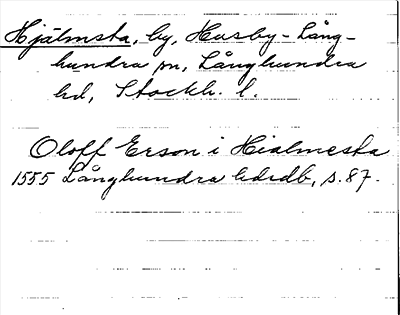 Hjälmsta, by, Husby-Lång-
hundra sn, Långhundra
hd, Stockh. l.
Oloff Erson i Hialmesta
1555 Långhundra hdrdb, s. 87.